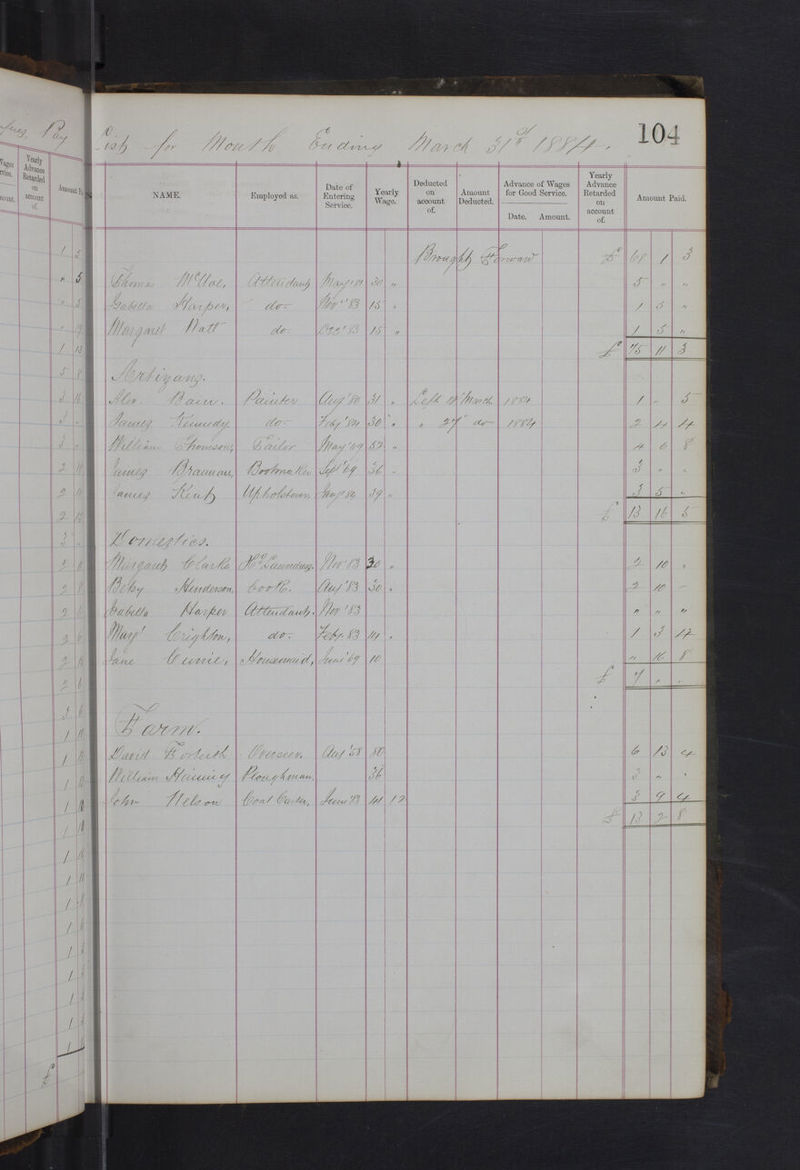 104
List for Month Ending March 31st 1884.
NAME. Employed as. Date of Entering Service. Yearly Wage. Deducted on account of. Amount Deducted. Advance of Wages for Good Service. Date. Amount. Yearly Advance Retarded on account of. Amount Paid.
Brought Forward £ 68 1 3
Attendant 30 " 5 " "
Isabella Harper, do- Nov '83 15 " 1 5 "
Margaret Watt do- Dec '83 15 " 1 5 "
£ 75 11 3
Artizans.
Alex. Bain. Painter Aug '80 31 " Left March 1884 1 - 5
James Kennedy do- Feby '84 30 " " 27 do 1884 2 4 4
William Thomson, Tailor May '69 52 " 4 6 8
James Brannan, Bootmaker Sept '69 36 " 3 " "
James Kent Upholsterer 39 " 3 5 "
£ 13 16 5
Domestics.
Margaret Clarke Hd Laundress. Nov '83 30 " 2 10 "
Betsy Henderson, Cook. Aug '83 30 " 2 10 -
Isabella Harper Attendant. Nov '83 " " "
Mary Crighton, do- Feby. 83 14 " 1 3 4
Jane Housemaid, June '69 10 " 16 8
£ 7 " "
Farm.
David Overseer. Aug '58 80 6 13 4
William Ploughman. 36 3 " "
John Nelson Coal Carter, June '83 41 12 3 9 4
£ 13 2 8